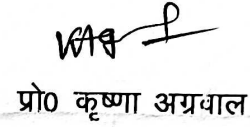 प्रो० कृष्णा अग्रवाल